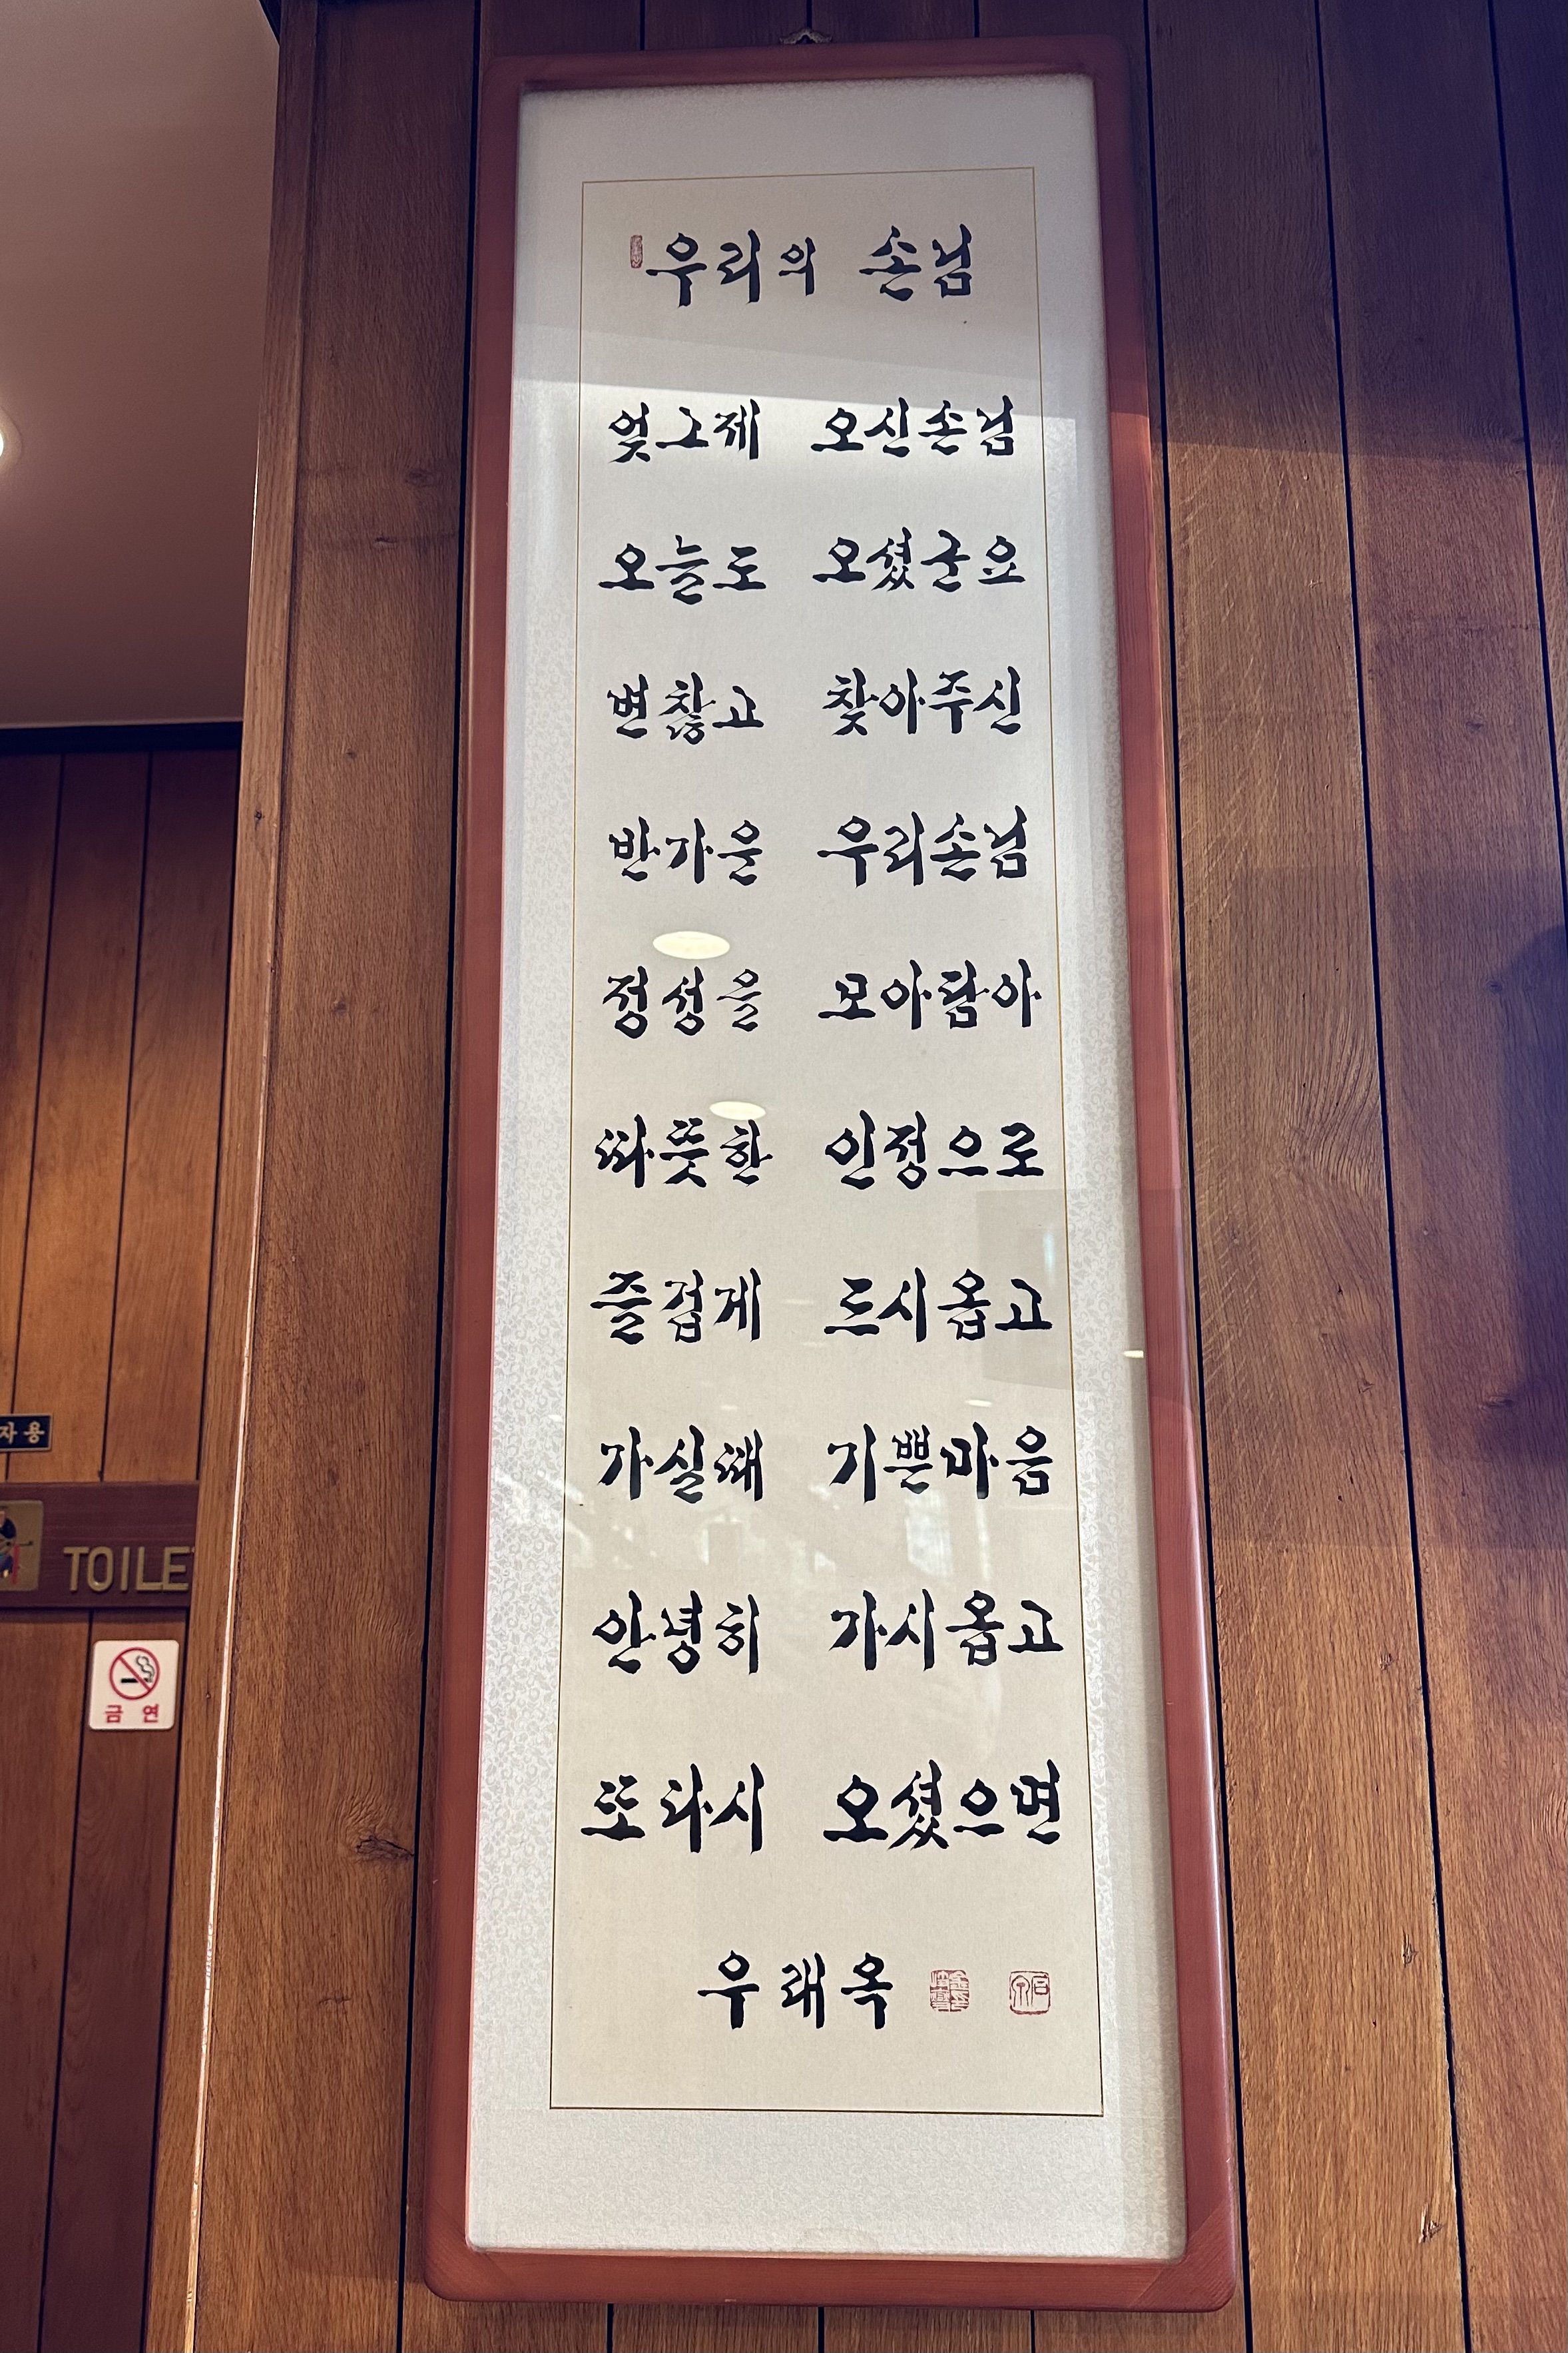 우리의 손님
엊그제 오신손님
오늘도 오셨군요
변찮고 찾아주신
반가운 우리손님
정성을 모아담아
따뜻한 인정으로
즐겁게 드시옵고
가실때 기쁜마음
안녕히 가시옵고
또다시 오셨으면
우래옥
자용
TOILE
금연